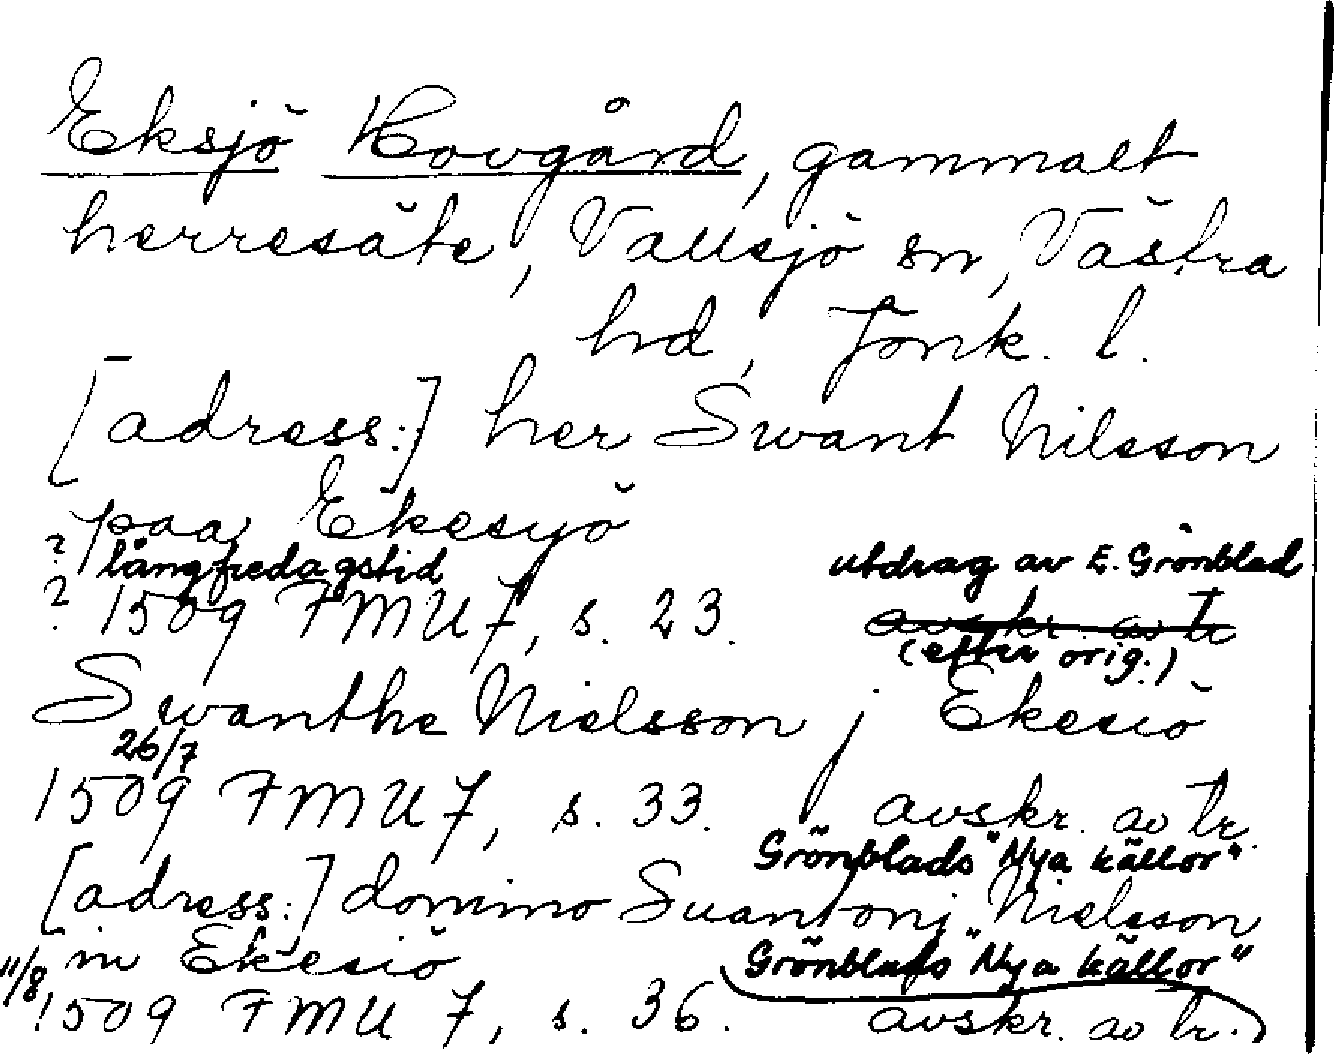 Eksjö Hovgård, gammalt
herresäte, Vallsjö sn, Västra
hd, Jönk. l.
[adress:] her Swant Nilsson
paa Ekesyö
? långfredagstid utdrag av E. Grönblad
? 1509 FMU 7, s. 23. avskr. av tr
(efter orig.)
Swanthe Nielsson j Ekesiö
26/7
1509 FMU 7, s. 33. avskr. av tr.
Grönblads "Nya källor"
[adress:] domino Suantonj Nielsson
in Ekesiö Grönblads "Nya källor"
11/8
1509 FMU 7, s. 36. avskr. av tr.